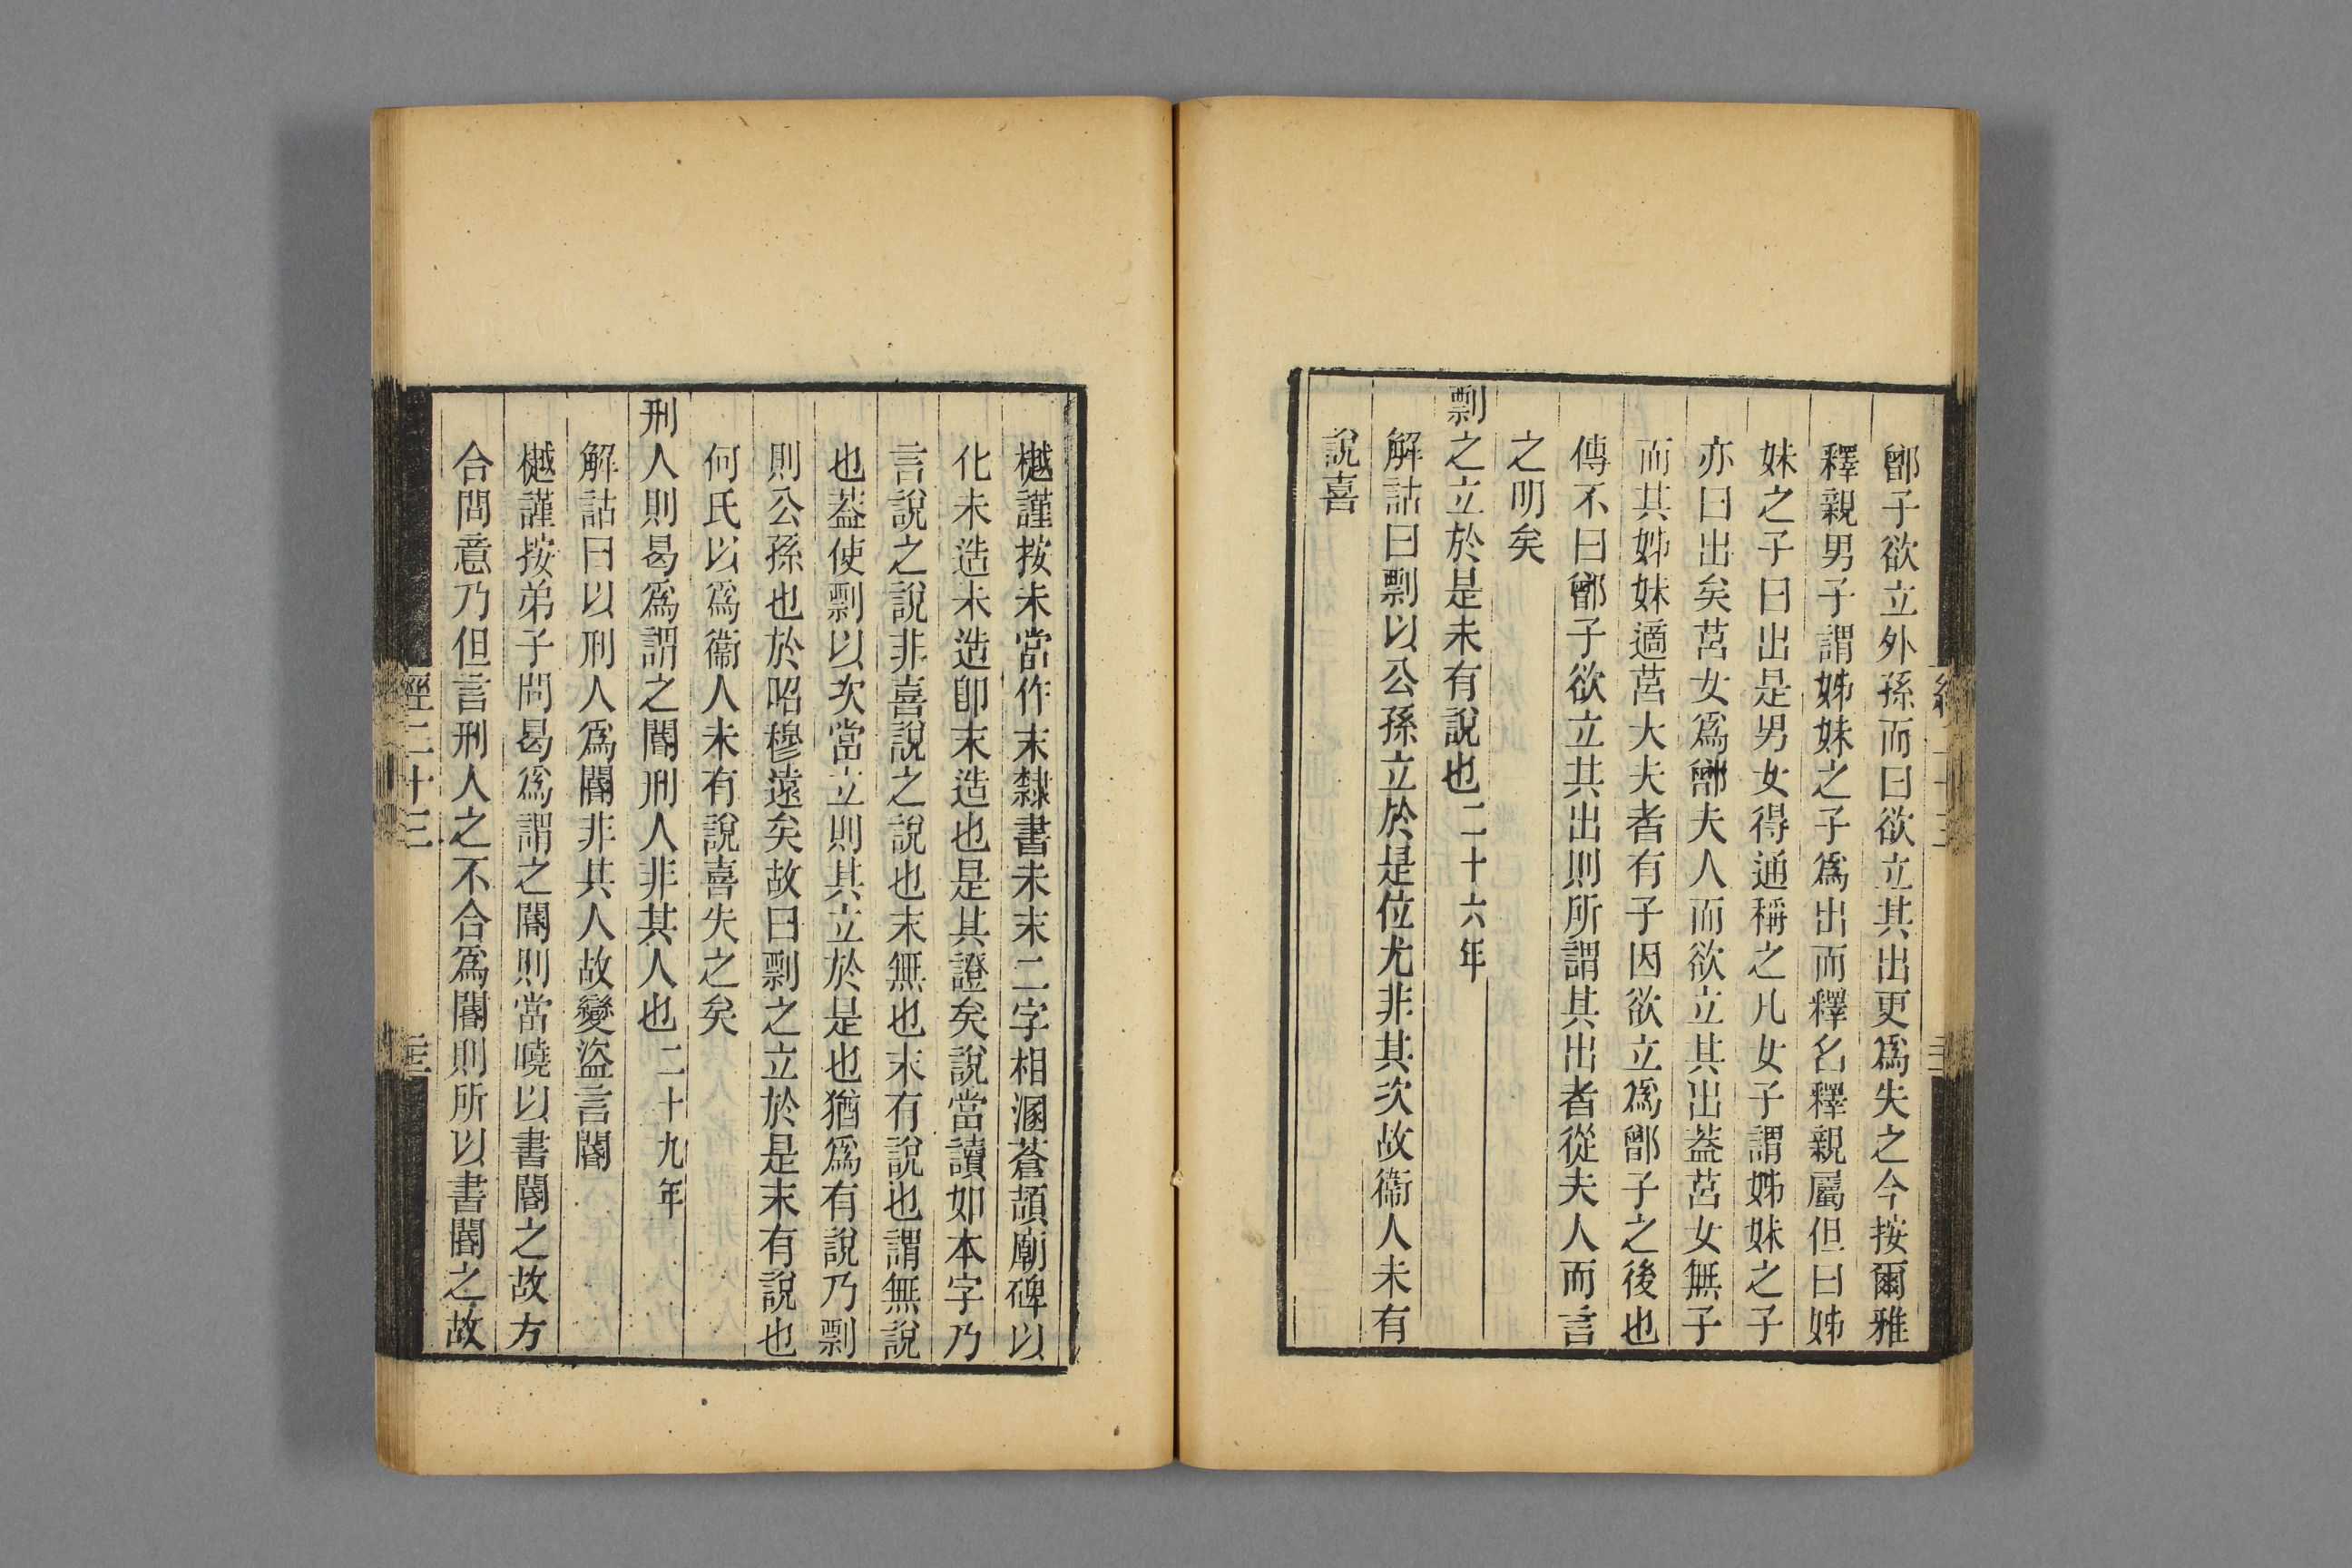 鄫子欲立外孫而曰欲立其出更爲失之今按爾雅
釋親男子謂姊妹之子爲出而釋名釋親屬但曰姊
妹之子曰出是男女得通稱之凡女子謂姊妹之子
亦曰出矣莒女爲鄫夫人而欲立其出葢莒女無子
而其姊妹適莒大夫者有子因欲立爲鄫子之後也
傳不曰鄫子欲立其出則所謂其出者從夫人而言
之明矣
剽之立於是未有說也二十六年
解詁曰剽以公孫立於是位尤非其次故衞人未有
說喜
樾謹按未當作末隸書未末二字相溷蒼頡廟碑以
化未造未造卽末造也是其證矣說當讀如本字乃
言說之說非喜說之說也末無也末有說也謂無說
也葢使剽以次當立則其立於是也猶爲有說乃剽
則公孫也於昭穆遠矣故曰剽之立於是末有說也
何氏以爲衞人未有說喜失之矣
刑人則曷爲謂之閽刑人非其人也二十九年
解詁曰以刑人爲閽非其人故變盜言閽
樾謹按弟子問曷爲謂之閽則當曉以書閽之故方
合問意乃但言刑人之不合爲閽則所以書閽之故
經二十三